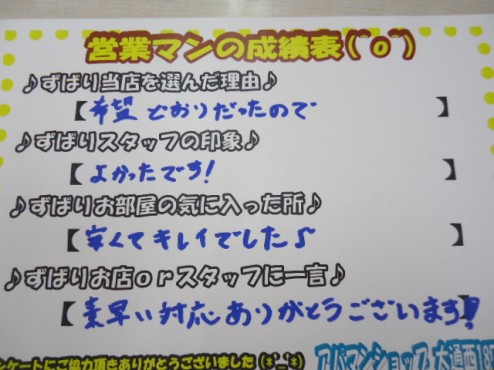 営業マンの成績表(^o^)
♪ずばり当店を選んだ理由♪
【希望どおりだったので】
♪ずばりスタッフの印象♪
【よかったです!】
♪ずばりお部屋の気に入った所♪
【安くてキレイでした♪】
♪ずばりお店orスタッフに一言♪
【素早い対応ありがとうございます!】
ンケートにご協力頂きありがとうございました(*^_^*)
アパマンショップ 大通西18